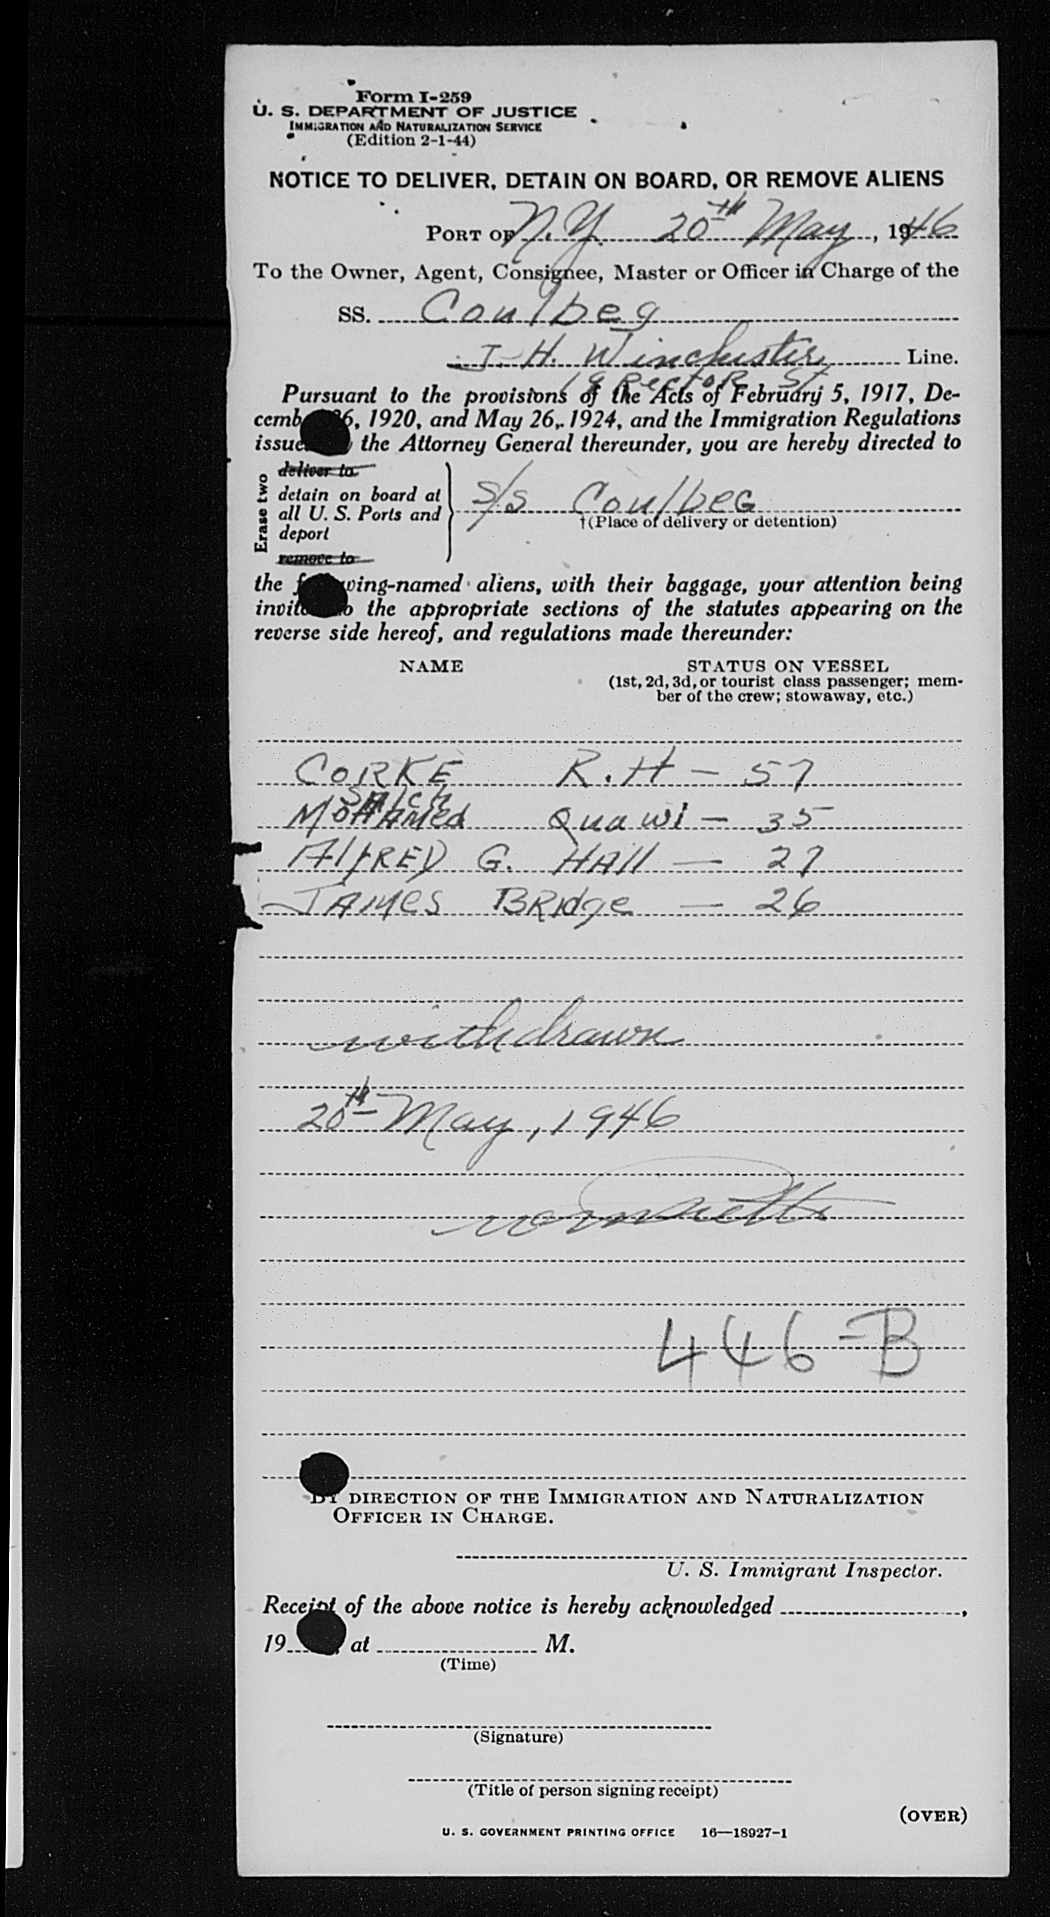 Form I-259
U. S. DEPARTMENT OF JUSTICE
IMMIGRATION AND NATURALIZATION SERVICE
(Edition 2-1-44)
NOTICE TO DELIVER, DETAIN ON BOARD, OR REMOVE ALIENS
PORT OF N.Y. 20th May, 1946
To the Owner, Agent, Consignee, Master or Officer in Charge of the
SS. Coulbeg
J. H. Winchester Line.
19 Rector St
Pursuant to the provisions of the Acts of February 5, 1917, De-
cemb 26, 1920, and May 26, 1924, and the Immigration Regulations
issue the Attorney General thereunder, you are hereby directed to
Erase two
deliver to
detain on board at
all U. S. Ports and
deport
remove to
S/S Coulbeg
†(Place of delivery or detention)
the f wing-named aliens, with their baggage, your attention being
invit o the appropriate sections of the statutes appearing on the
reverse side hereof, and regulations made thereunder:
NAME STATUS ON VESSEL
(1st, 2d, 3d, or tourist class passenger; mem-
ber of the crew; stowaway, etc.)
CORKE R.H - 57
SAleh
MOHAMed Quawi - 35
AlfRED G. HAll - 27
JAMes BRIdge - 26
withdrawn
20th May, 1946
446-B
BY DIRECTION OF THE IMMIGRATION AND NATURALIZATION
OFFICER IN CHARGE.
U. S. Immigrant Inspector.
Receipt of the above notice is hereby acknowledged ,
19 , at M.
(Time)
(Signature)
(Title of person signing receipt)
(OVER)
U. S. GOVERNMENT PRINTING OFFICE 16—18927-1